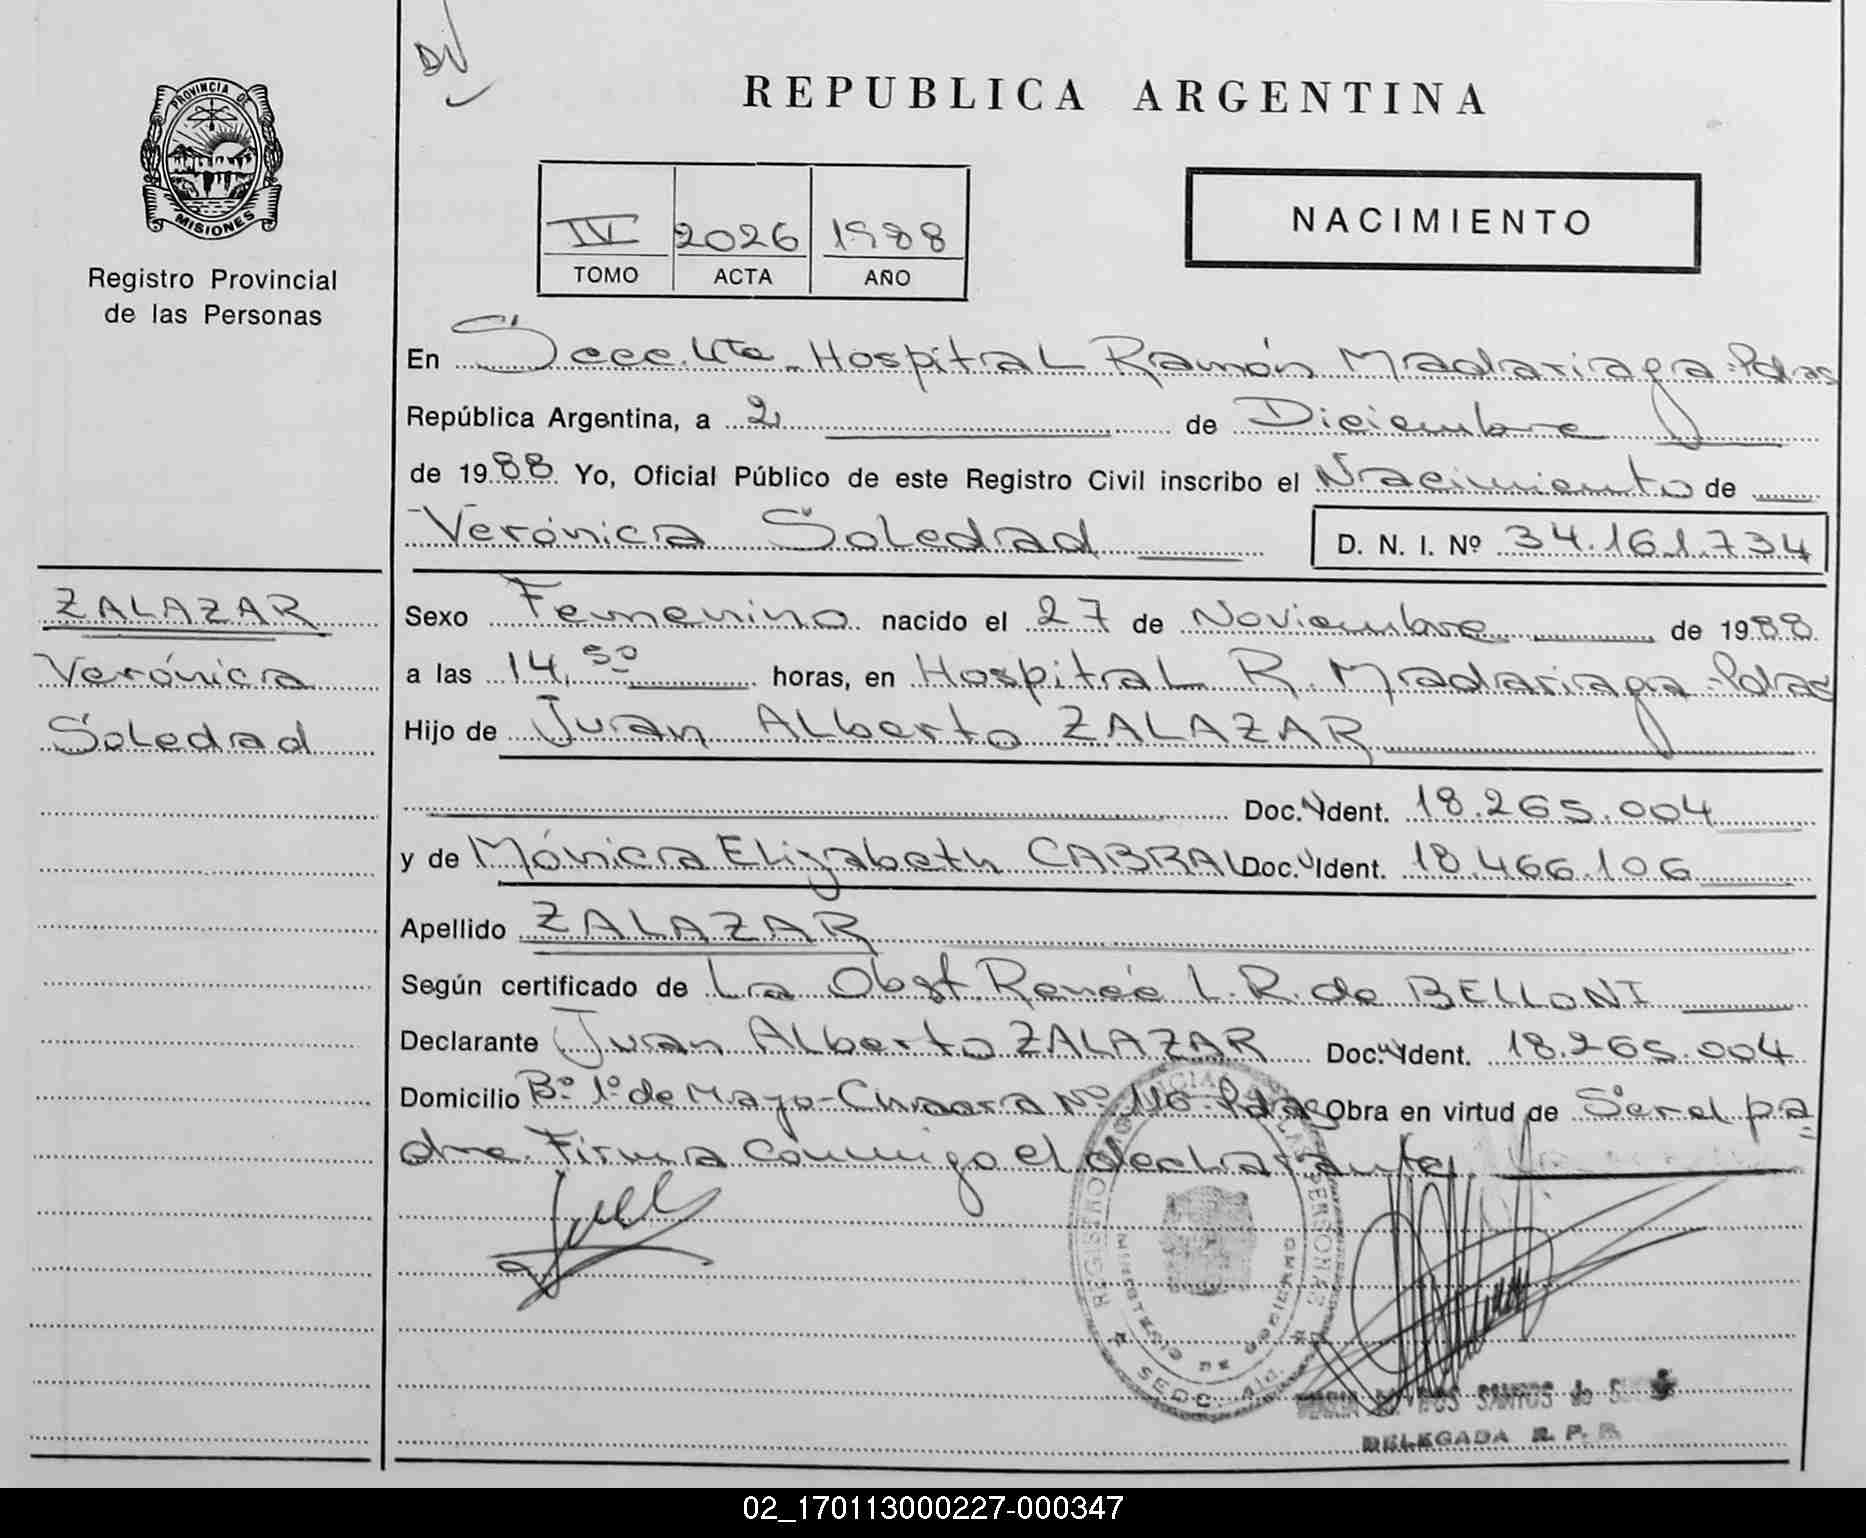 DV
PROVINCIA DE
MISIONES
Registro Provincial
de las Personas
REPUBLICA ARGENTINA
IV 2026 1988
TOMO ACTA AÑO
NACIMIENTO
En Secc. 4ta - Hospital Ramón Madariaga - Pdas
República Argentina, a 2 de Diciembre
de 1988 Yo, Oficial Público de este Registro Civil inscribo el Nacimiento de
Verónica Soledad D. N. I. Nº 34.161.734
ZALAZAR
Verónica
Soledad
Sexo Femenino nacido el 27 de Noviembre de 1988
a las 14,50 horas, en Hospital R. Madariaga - Pdas
Hijo de Juan Alberto ZALAZAR
Doc. Ident. 18.265.004
y de Mónica Elizabeth CABRAL Doc. Ident. 18.466.106
Apellido ZALAZAR
Según certificado de La Obst. Renée L. R. de BELLONI
Declarante Juan Alberto ZALAZAR Doc. Ident. 18.265.004
Domicilio Bº 1º de Mayo - Chacra Nº 116 - Pdas Obra en virtud de Ser el pa
dre. Firma conmigo el declarante
REGISTRO PERSONAS
MINISTERIO DE GOBIERNO
SECC. 4ta.
DOS SANTOS de
DELEGADA R. P. P.
02_170113000227-000347